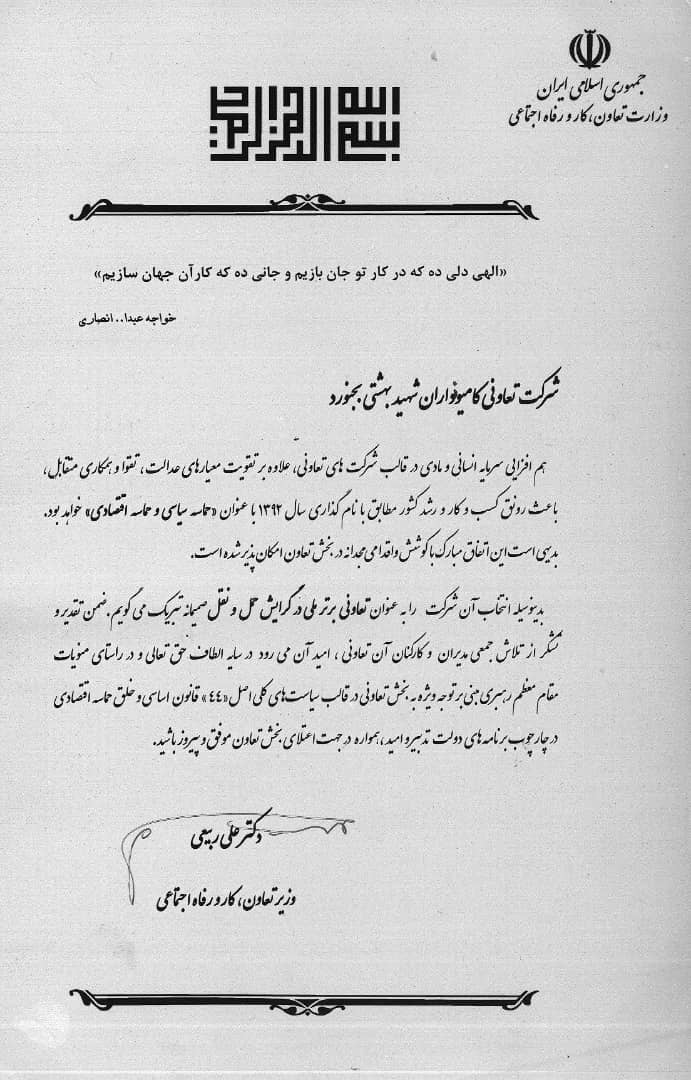 جمهوری اسلامی ایران
وزارت تعاون، کار و رفاه اجتماعی
بسم الله الرحمن الرحیم
«الهی دلی ده که در کار تو جان بازیم و جانی ده که کار آن جهان سازیم»
خواجه عبدا.. انصاری
شرکت تعاونی کامیونداران شهید بهشتی بجنورد
هم افزایی سرمایه انسانی و مادی در قالب شرکت های تعاونی، علاوه بر تقویت معیارهای عدالت، تقوا و همکاری متقابل،
باعث رونق کسب و کار و رشد کشور مطابق با نام گذاری سال ۱۳۹۲ با عنوان «حماسه سیاسی و حماسه اقتصادی» خواهد بود.
بدیهی است این اتفاق مبارک با کوشش و اقدامی مجدانه در بخش تعاون امکان پذیر شده است.
بدینوسیله انتخاب آن شرکت را به عنوان تعاونی برتر ملی در گرایش حمل و نقل صمیمانه تبریک می گویم. ضمن تقدیر و
تشکر از تلاش جمعی مدیران و کارکنان آن تعاونی، امید آن می رود در سایه الطاف حق تعالی و در راستای منویات
مقام معظم رهبری مبنی بر توجه ویژه به بخش تعاونی در قالب سیاست های کلی اصل «۴۴» قانون اساسی و خلق حماسه اقتصادی
در چارچوب برنامه های دولت تدبیر و امید، همواره در جهت اعتلای بخش تعاون موفق و پیروز باشید.
دکتر علی ربیعی
وزیر تعاون، کار و رفاه اجتماعی